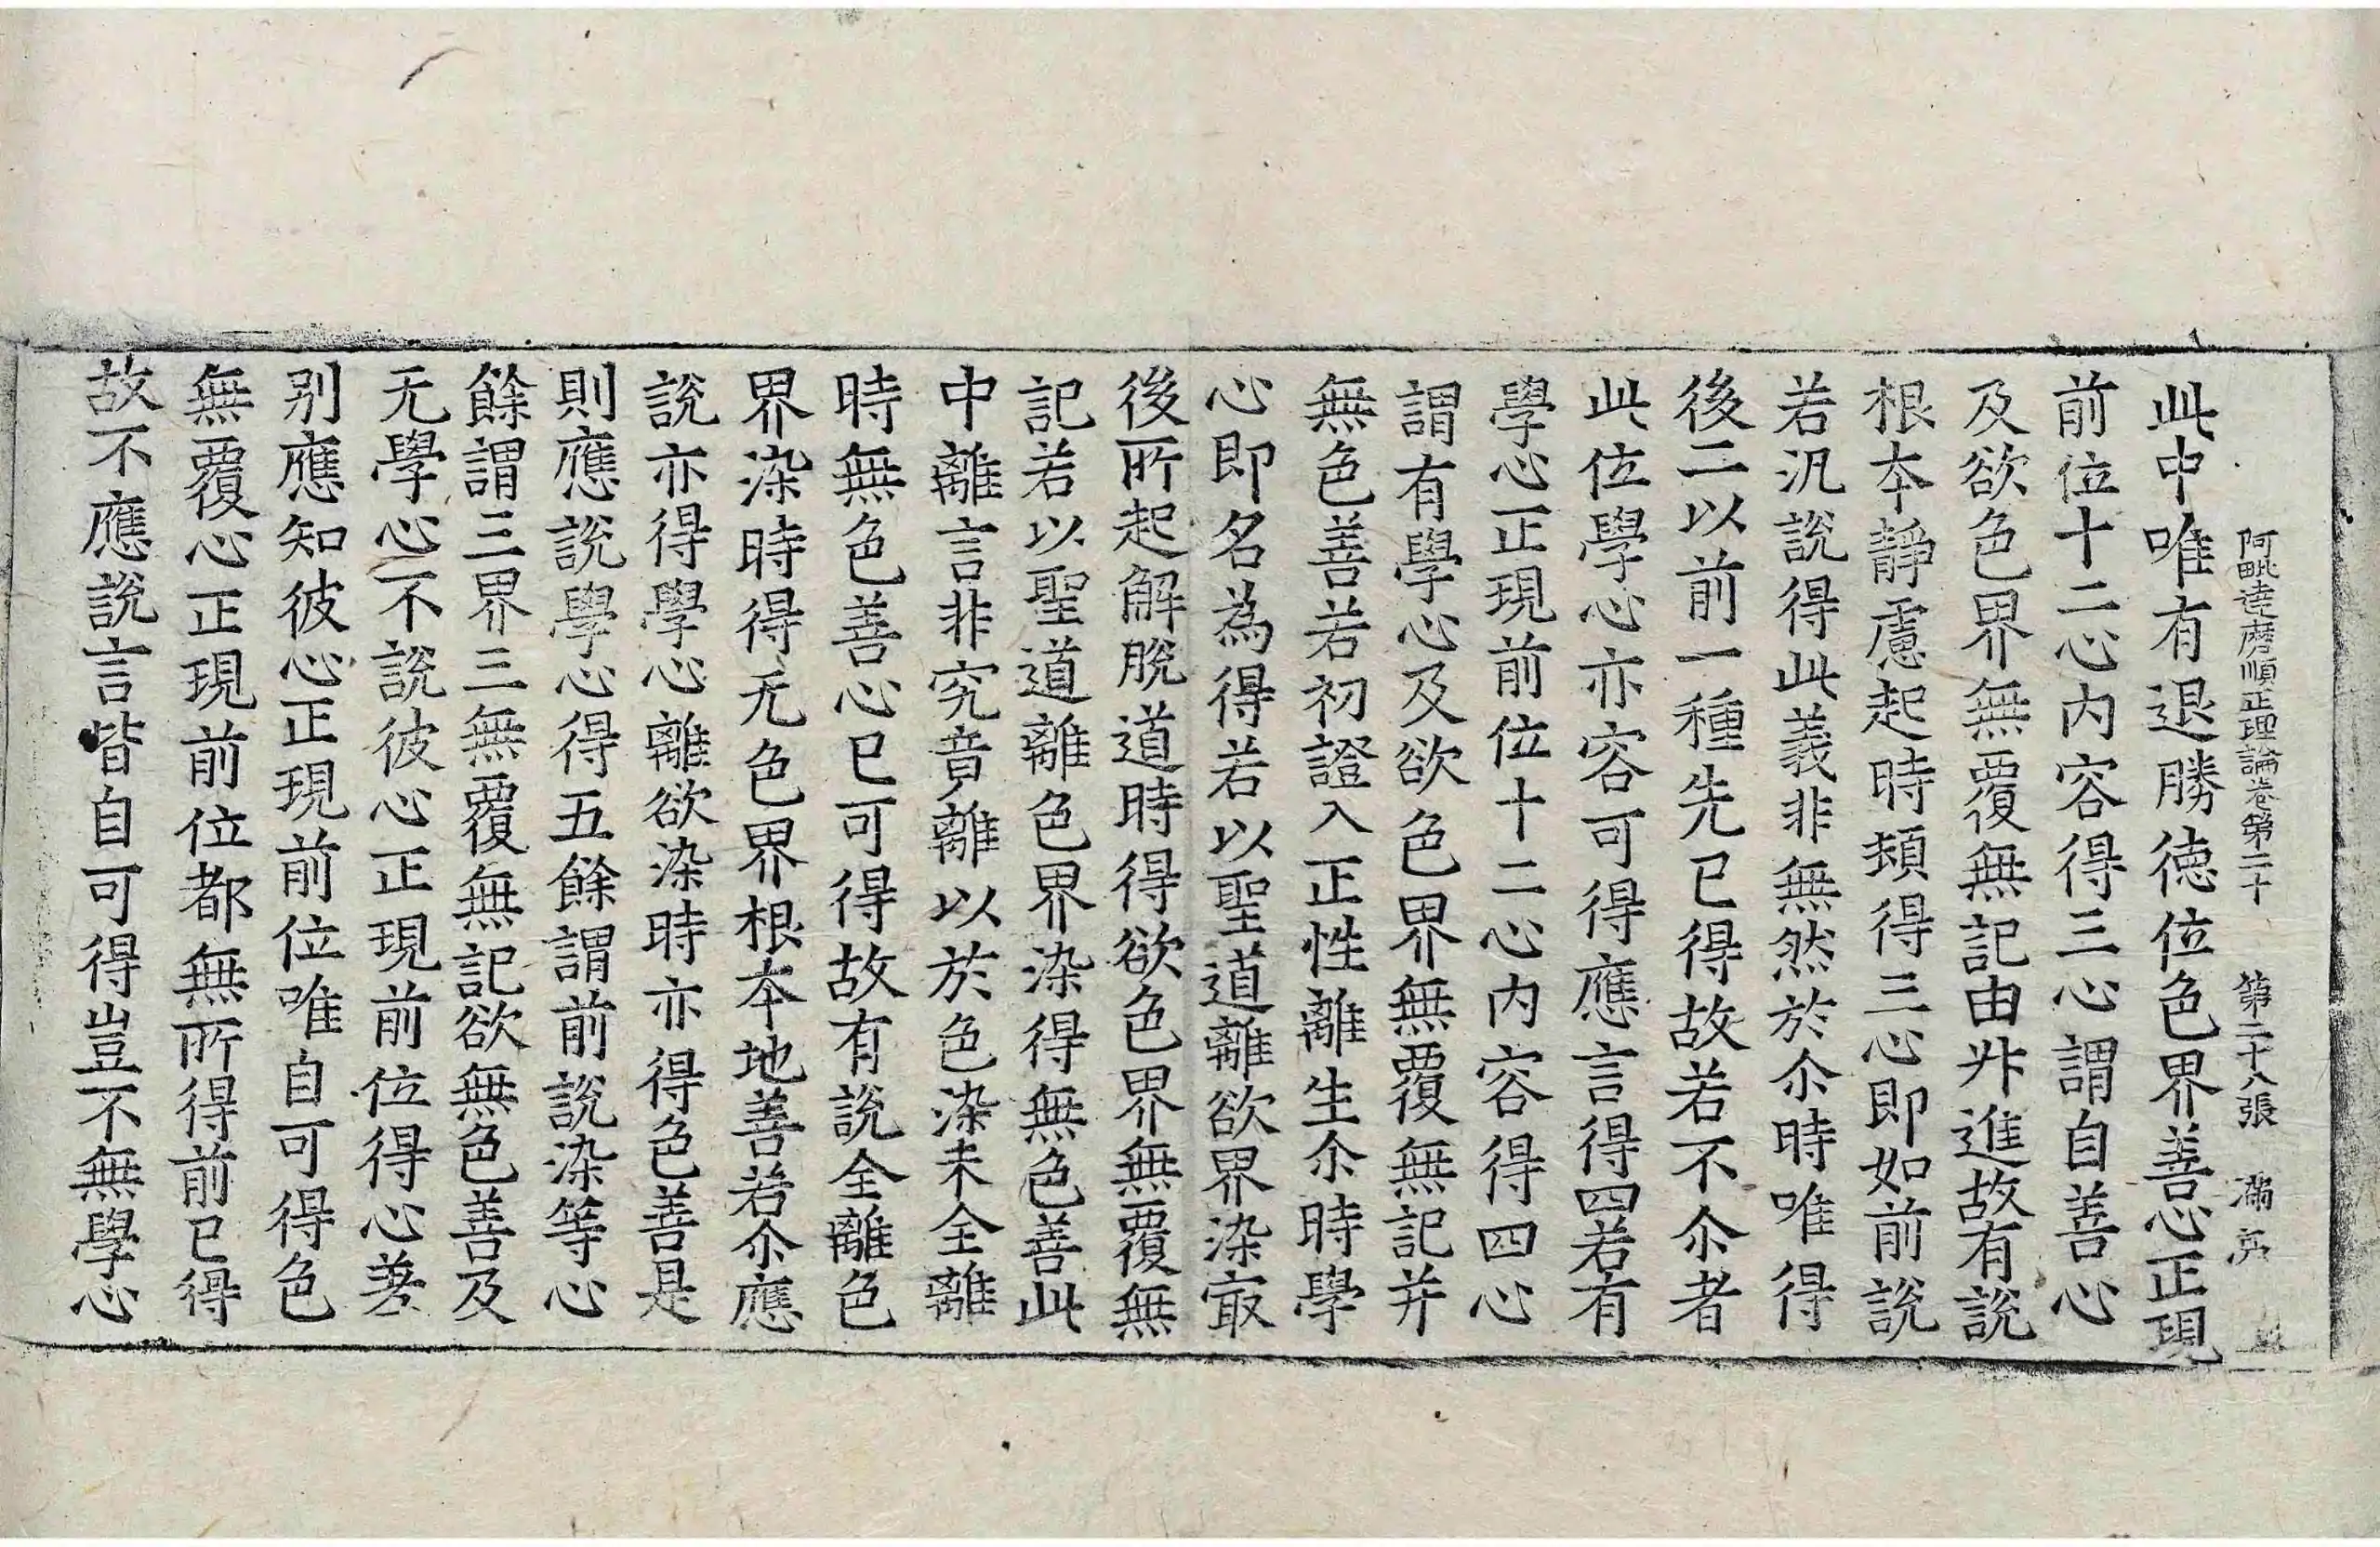 阿毗達磨順正理論卷第二十　第二十八張　滿
此中唯有退勝德位色界善心正現
前位十二心內容得三心謂自善心
及欲色界無覆無記由升進故有說
根本靜慮起時頓得三心即如前說
若汎說得此義非無然於尒時唯得
後二以前一種先已得故若不尒者
此位學心亦容可得應言得四若有
學心正現前位十二心內容得四心
謂有學心及欲色界無覆無記并
無色善若初證入正性離生尒時學
心即名為得若以聖道離欲界染㝡
後所起解脫道時得欲色界無覆無
記若以聖道離色界染得無色善此
中離言非究竟離以於色染未全離
時無色善心已可得故有說全離色
界染時得无色界根本地善若尒應
說亦得學心離欲染時亦得色善是
則應說學心得五餘謂前說染等心
餘謂三界三無覆無記欲無色善及
无學心不說彼心正現前位得心差
別應知彼心正現前位唯自可得色
無覆心正現前位都無所得前已得
故不應說言皆自可得豈不無學心